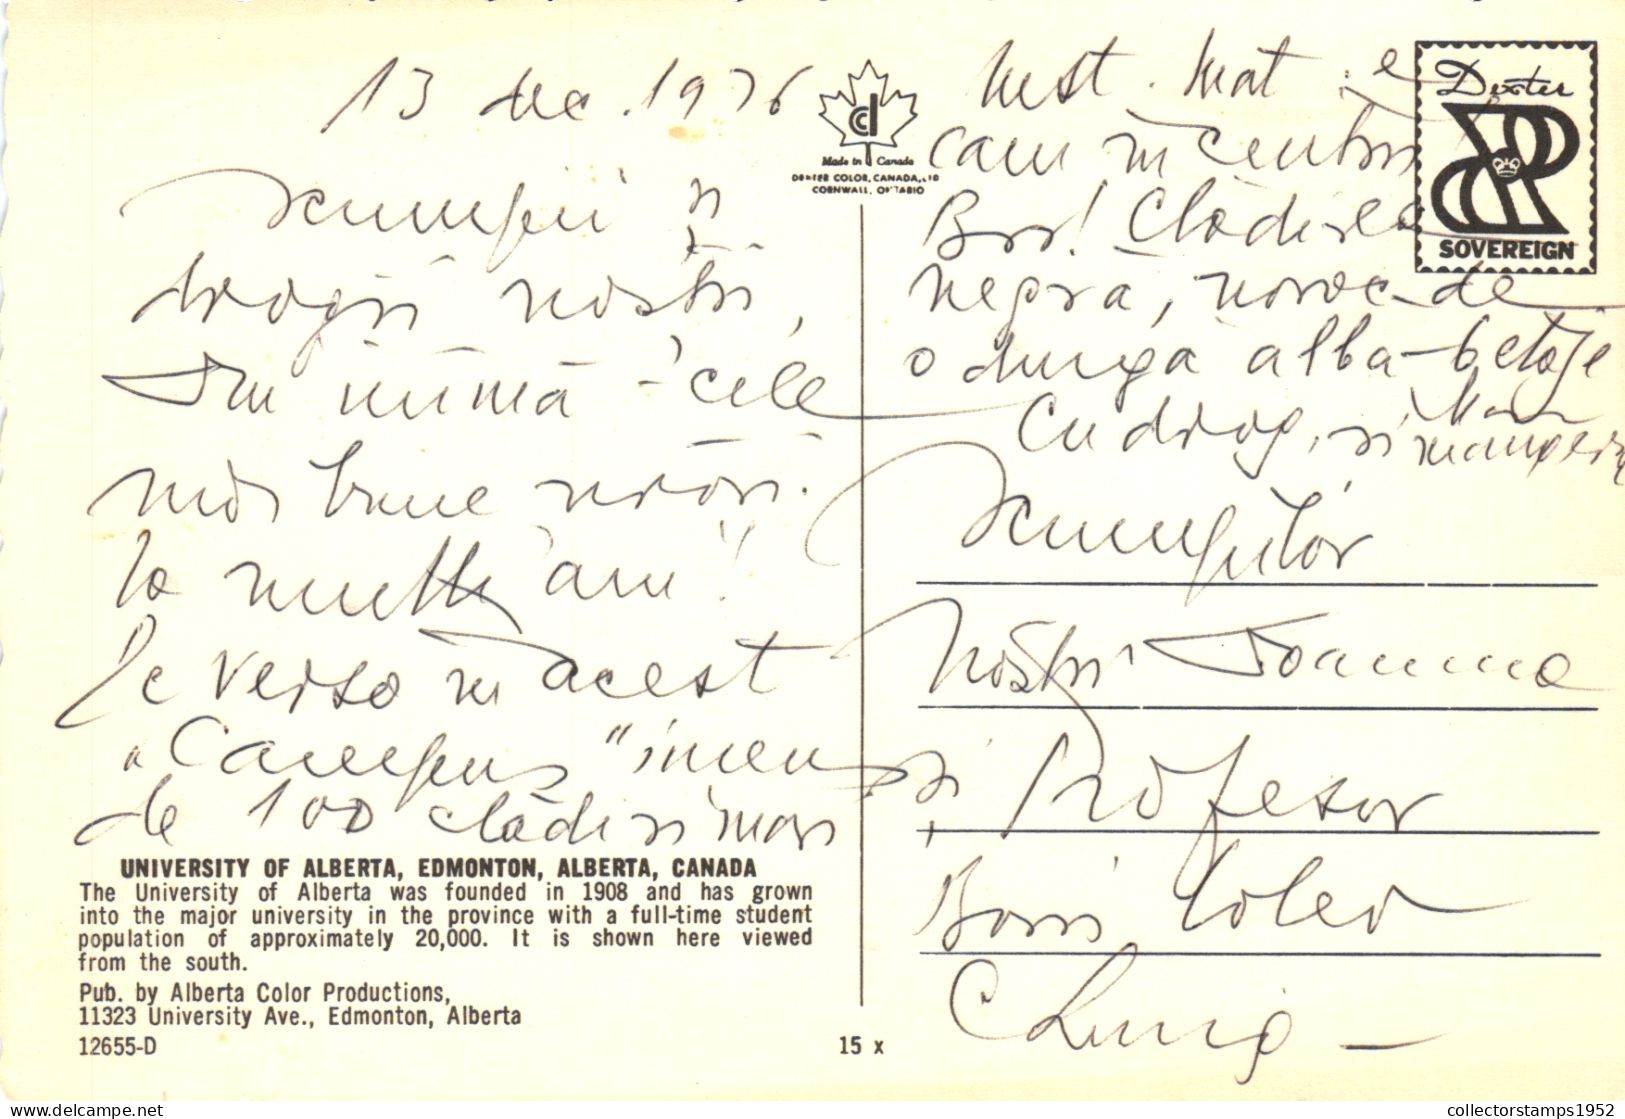 13 dec. 1976
Scumpii și
dragii noștri,
Din inimă cele
mai bune urări.
La mulți ani!
Pe verso în acest
"Campus" imens
de 100 clădiri și mari
Inst. Mat. e
cam în centru
Brr! Clădirea
neagra, noroc de
o dunga alba
Cu drag, și
Scumpilor
Noștri Ioanna
și Profesor
Boris
Cluj -
Made in Canada
DEXTER COLOR, CANADA, LTD
CORNWALL, ONTARIO
Dexter
SOVEREIGN
UNIVERSITY OF ALBERTA, EDMONTON, ALBERTA, CANADA
The University of Alberta was founded in 1908 and has grown
into the major university in the province with a full-time student
population of approximately 20,000. It is shown here viewed
from the south.
Pub. by Alberta Color Productions,
11323 University Ave., Edmonton, Alberta
12655-D
15 x
collectorstamps1952
delcampe.net